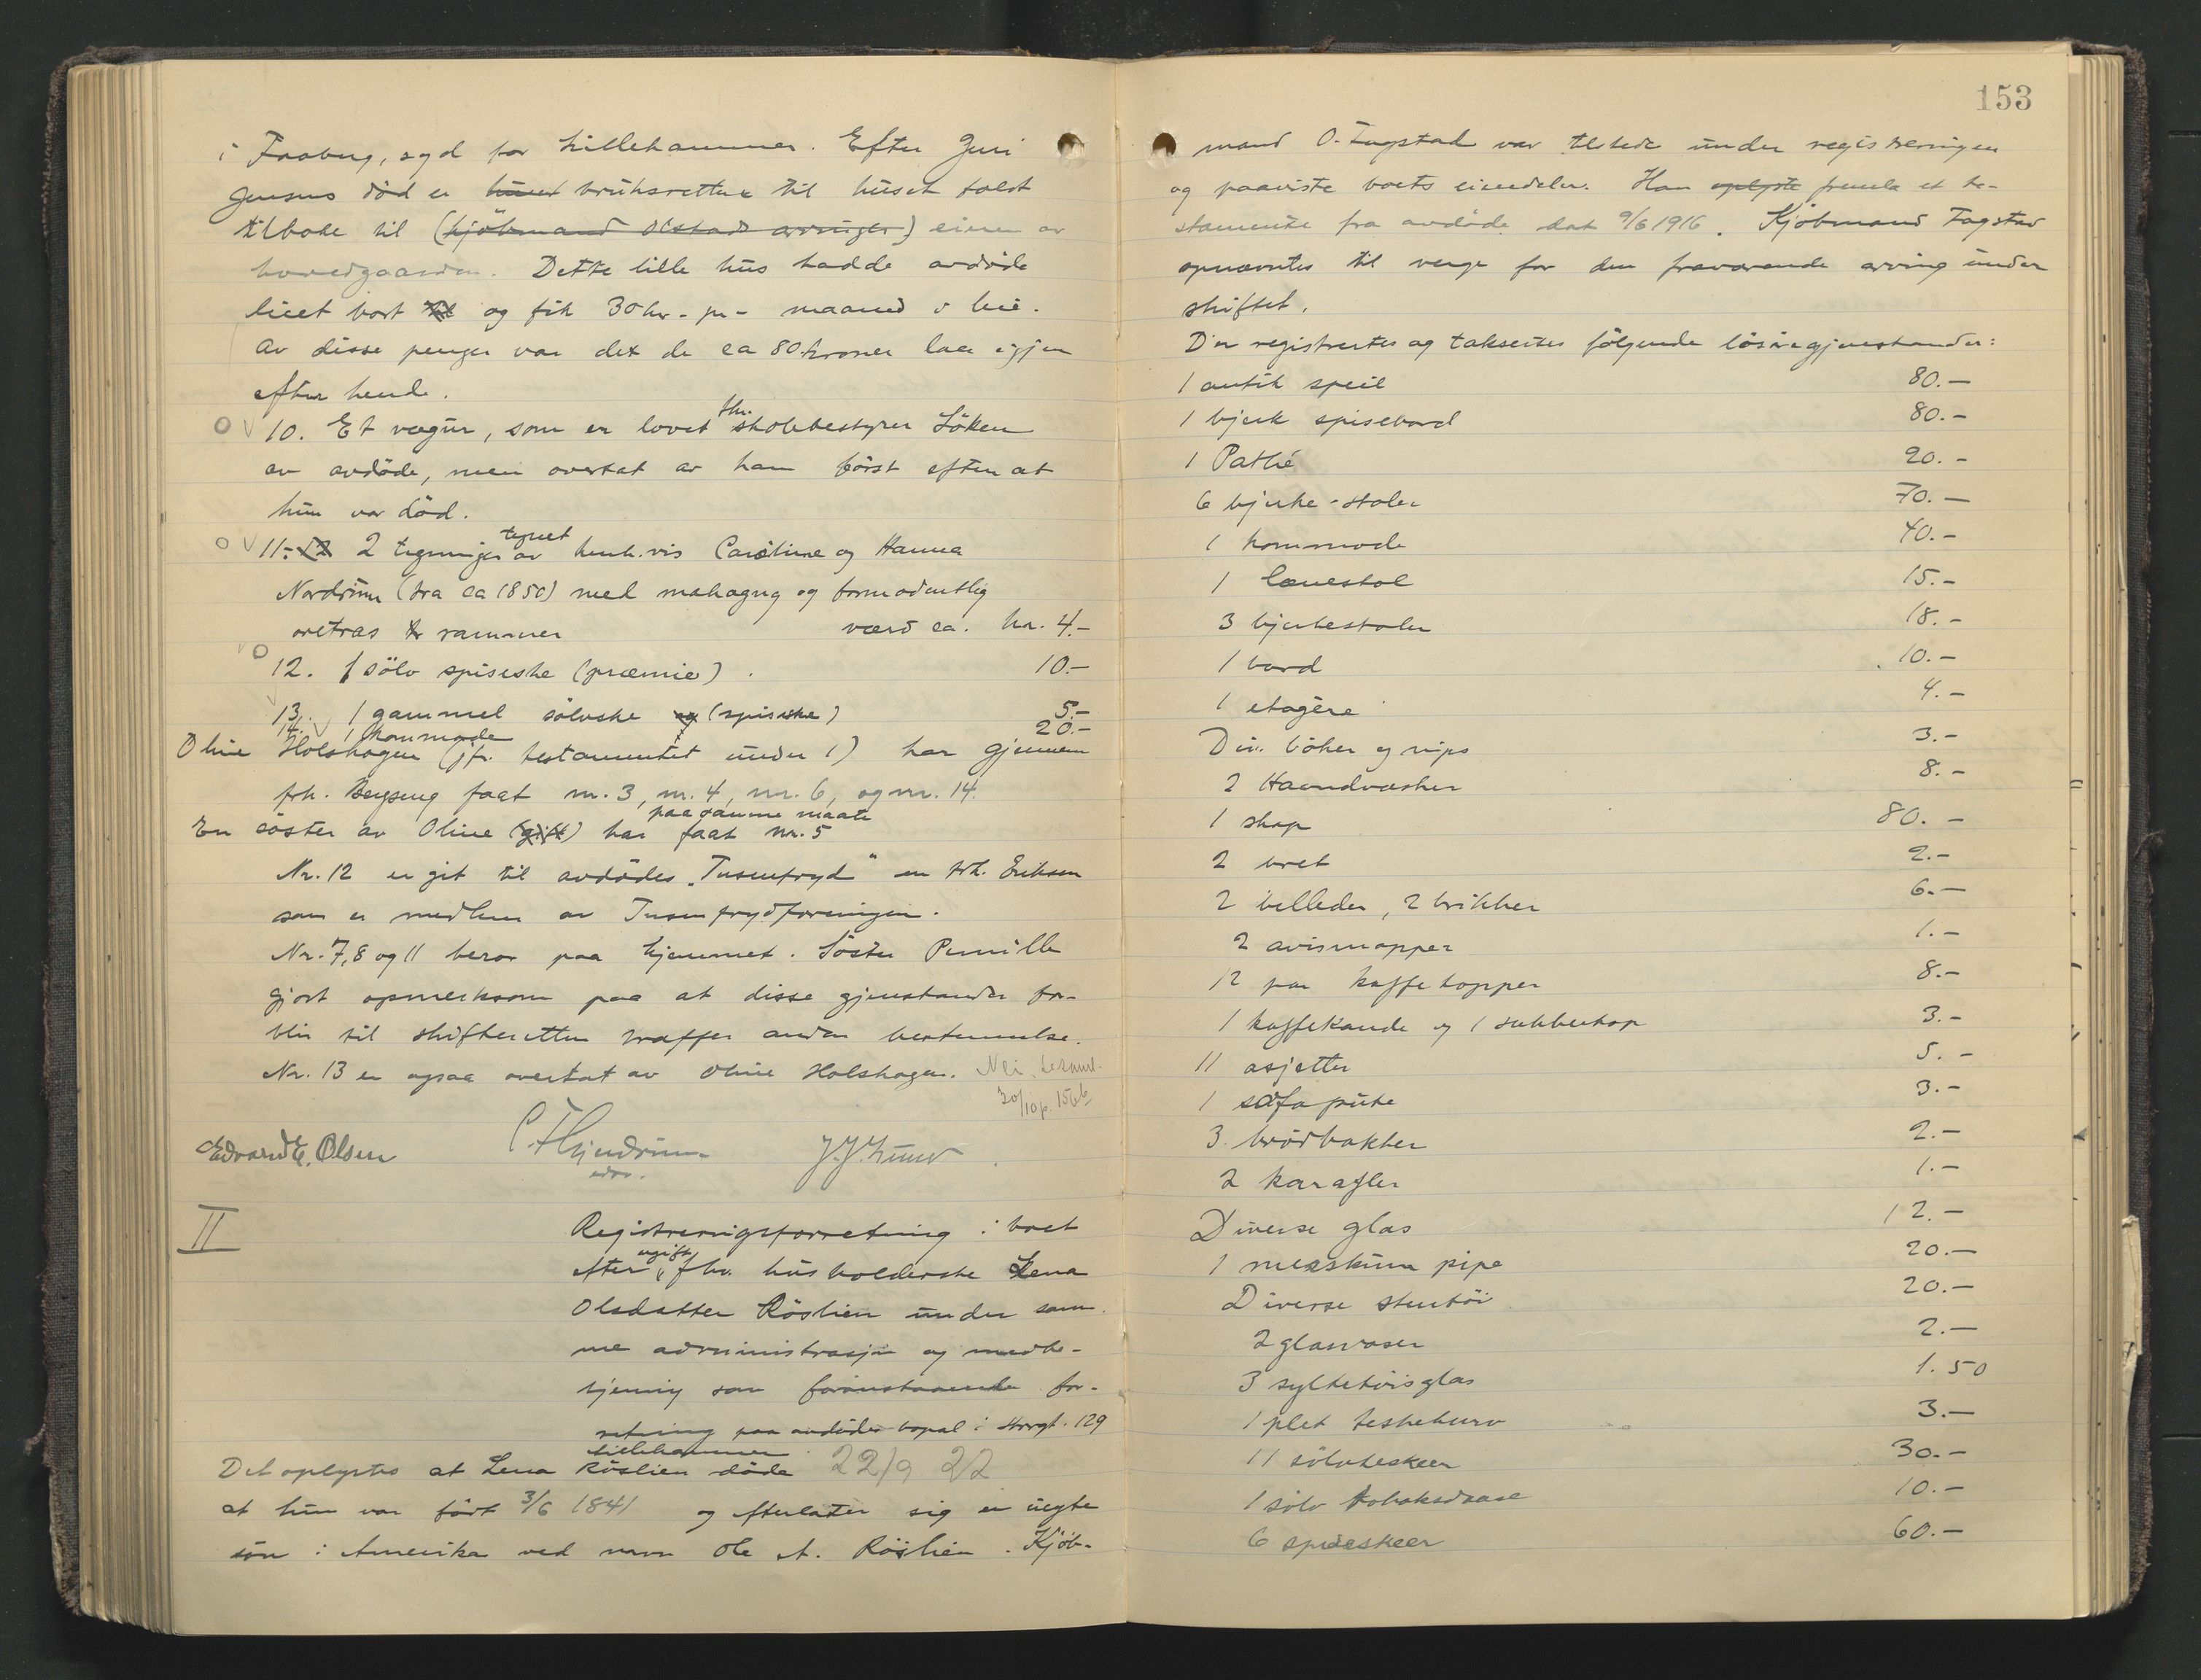 i Faaberg, syd for Lillehammer. Efter Guri
Jensens död er huset bruksretten til huset faldt
tilbake til (kjöbmand Olstads arvinger) eieren av
hovedgaarden. Dette lille hus hadde avdöde
leiet bort til og fik 30 kr. pr. maaned i leie.
Av disse penger var det de ca 80 kroner laa igjen
efter hende.
10. Et vægur, som er lovet fhv. skolebestyrer Löken
av avdöde, men overtat av ham först efter at
hun var död.
11. 12 2 tegninger tegnet av henh.vis Caroline og Hanna
Nordrum (fra ca 1850) med mahogny og formodentlig
oretræs rammer værd ca. kr. 4.-
12. 1 sölv spiseske (præmie) 10.-
13. 1 gammel sölvske og (spiseske) 5.-
14. 1 kommode 20.-
Oline Holshagen (jfr. testamentet under 1) har gjennem
frk. Bergseng faat nr. 3, nr. 4, nr. 6, og nr. 14.
En söster av Oline (gift) har paa samme maate faat nr. 5
Nr. 12 er git til avdödes "Tusenfryd" en frk. Eriksen
som er medlem av Tusenfrydforeningen.
Nr. 7, 8 og 11 beror paa hjemmet. Söster Pernille
gjort opmerksom paa at disse gjenstander for-
blir til skifteretten træffer anden bestemmelse.
Nr. 13 er ogsaa overtat av Oline Holshagen. Nei,
20/10 p. 156b
Edvard E. Olsen
II
Registreringsforretning i boet
efter ugift fhv. husholderske Lena
Olsdatter Röslien under sam-
me administrasjon og medbe-
tjening som foranstaaende for-
retning paa avdödes bopæl i Storgt. 129
Lillehammer
Det oplystes at Lena Röslien döde 22/9 22
at hun var födt 3/6 1841 og efterlater sig en uegte
sön i Amerika ved navn Ole A. Röslien. Kjöb-
153
mand O. Fagstad var tilstede under registreringen
og paaviste boets eiendeler. Han oplyste fremla et te-
stamente fra avdöde dat 9/6 1916. Kjöbmand Fagstad
opnævntes til verge for den fraværende arving under
skiftet.
Der registrertes og taksertes fölgende lösöregjenstander:
1 antik speil 80.-
1 bjerk spisebord 80.-
1 Pathé 20.-
6 bjerke-stoler 70.-
1 kommode 40.-
1 lænestol 15.-
3 bjerkestoler 18.-
1 bord 10.-
1 etagère 4.-
Div. böker og nips 3.-
2 Haandvasker 8.-
1 skap 80.-
2 bret 2.-
2 billeder, 2 brikker 6.-
2 avismapper 1.-
12 par kaffekopper 8.-
1 kaffekande og 1 sukkerkop 3.-
11 asjetter 5.-
1 sofapute 3.-
3 brödbakker 2.-
2 karafler 1.-
Diverse glas 12.-
1 merskum pipe 20.-
Diverse stentöi 20.-
2 glasvaser 2.-
3 syltetöisglas 1.50
1 plet teskekurv 3.-
11 sölvteskeer 30.-
1 sölv tobaksdaase 10.-
6 spiseskeer 60.-